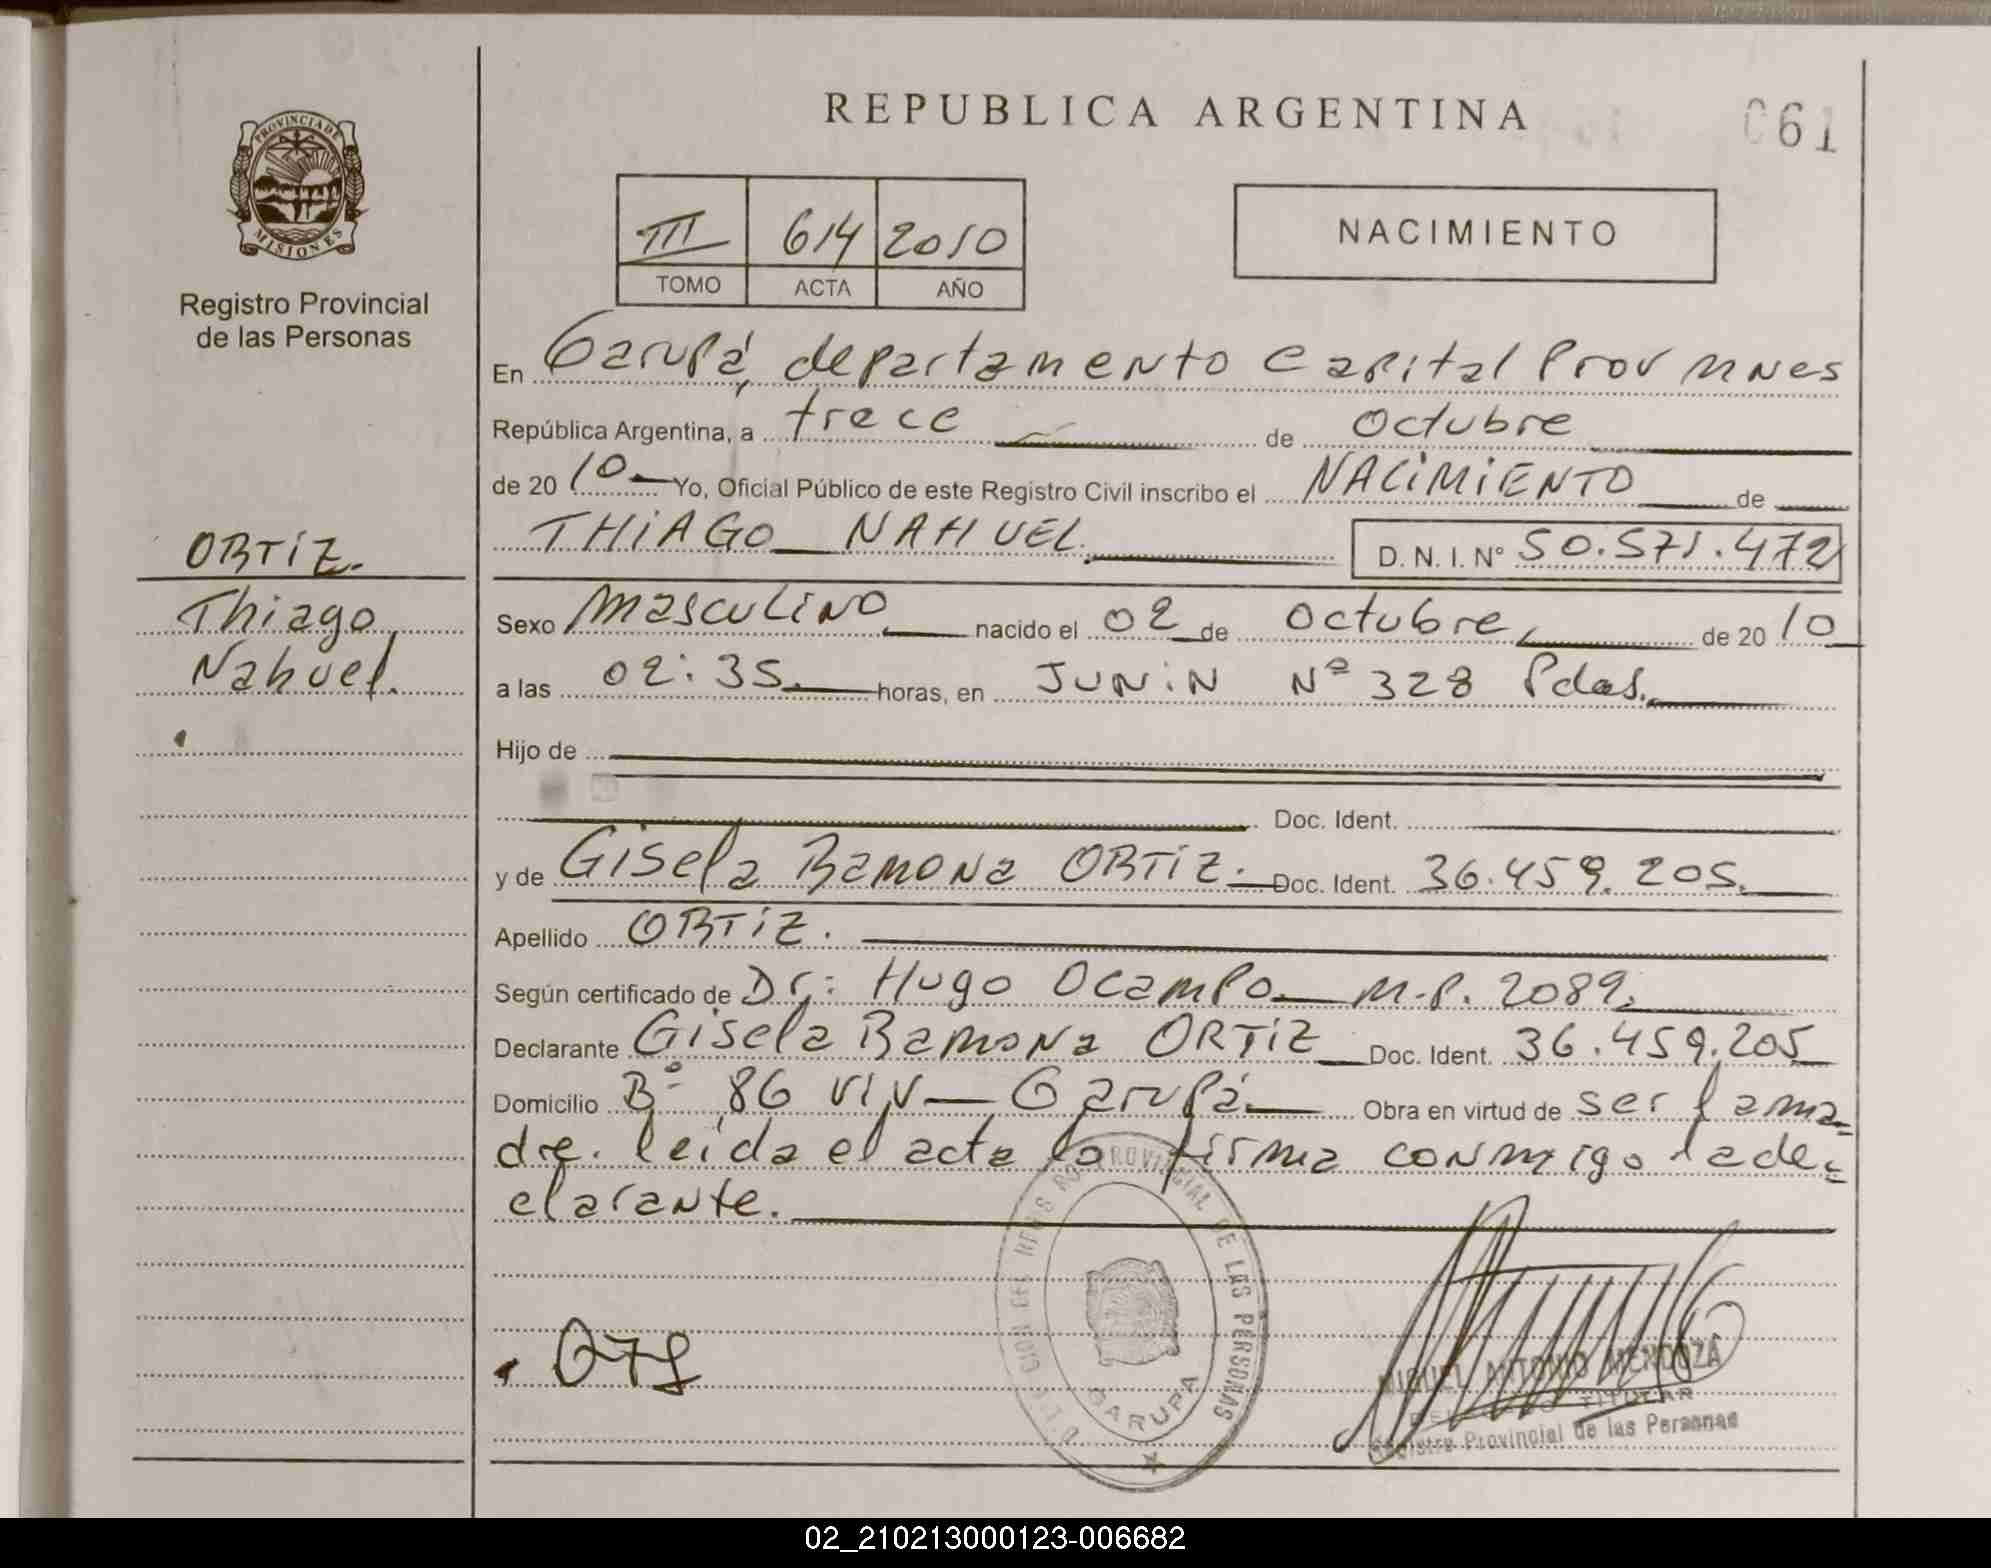 REPUBLICA ARGENTINA
061
PROVINCIA DE
MISIONES
Registro Provincial
de las Personas
III 614 2010
TOMO ACTA AÑO
NACIMIENTO
En Garupá, departamento Capital Prov Mnes
República Argentina, a trece de Octubre
de 2010 Yo, Oficial Público de este Registro Civil inscribo el NACIMIENTO de
THIAGO NAHUEL D. N. I. Nº 50.571.472
ORTIZ.
Thiago
Nahuel.
Sexo Masculino nacido el 02 de Octubre, de 2010
a las 02:35. horas, en JUNIN Nº 328 Pdas.
Hijo de
Doc. Ident.
y de Gisela Ramona ORTIZ. Doc. Ident. 36.459.205.
Apellido ORTIZ.
Según certificado de Dr.: Hugo Ocampo M.P. 2089.
Declarante Gisela Ramona ORTIZ Doc. Ident. 36.459.205
Domicilio Bº 86 viv - Garupá Obra en virtud de ser la ma-
dre. leida el acta la firma conmigo la de-
clarante.
PROVINCIAL DE LAS PERSONAS
GARUPA
MIGUEL ANTONIO MENDOZA
TITULAR
Registro Provincial de las Personas
02_210213000123-006682